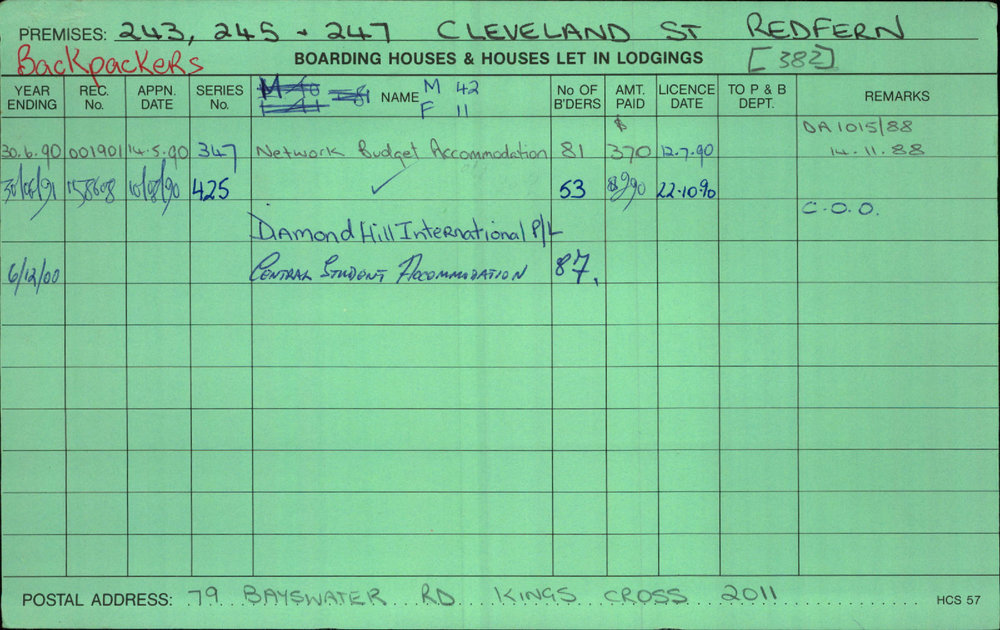 PREMISES: 243, 245 + 247 CLEVELAND ST REDFERN
Backpackers BOARDING HOUSES & HOUSES LET IN LODGINGS [382]
YEAR ENDING REC. No. APPN. DATE SERIES No. NAME M 42 F 11 No OF B'DERS AMT. PAID LICENCE DATE TO P & B DEPT. REMARKS
$ DA 1015/88
30.6.90 001901 14.5.90 347 Network Budget Accommodation 81 370 12.7.90 14.11.88
30/06/91 158608 10/08/90 425 ✓ 53 22.10.90
C.O.O.
Diamond Hill International P/L
6/12/00 Central Student Accommodation 87.
POSTAL ADDRESS: 79 BAYSWATER RD KINGS CROSS 2011 HCS 57